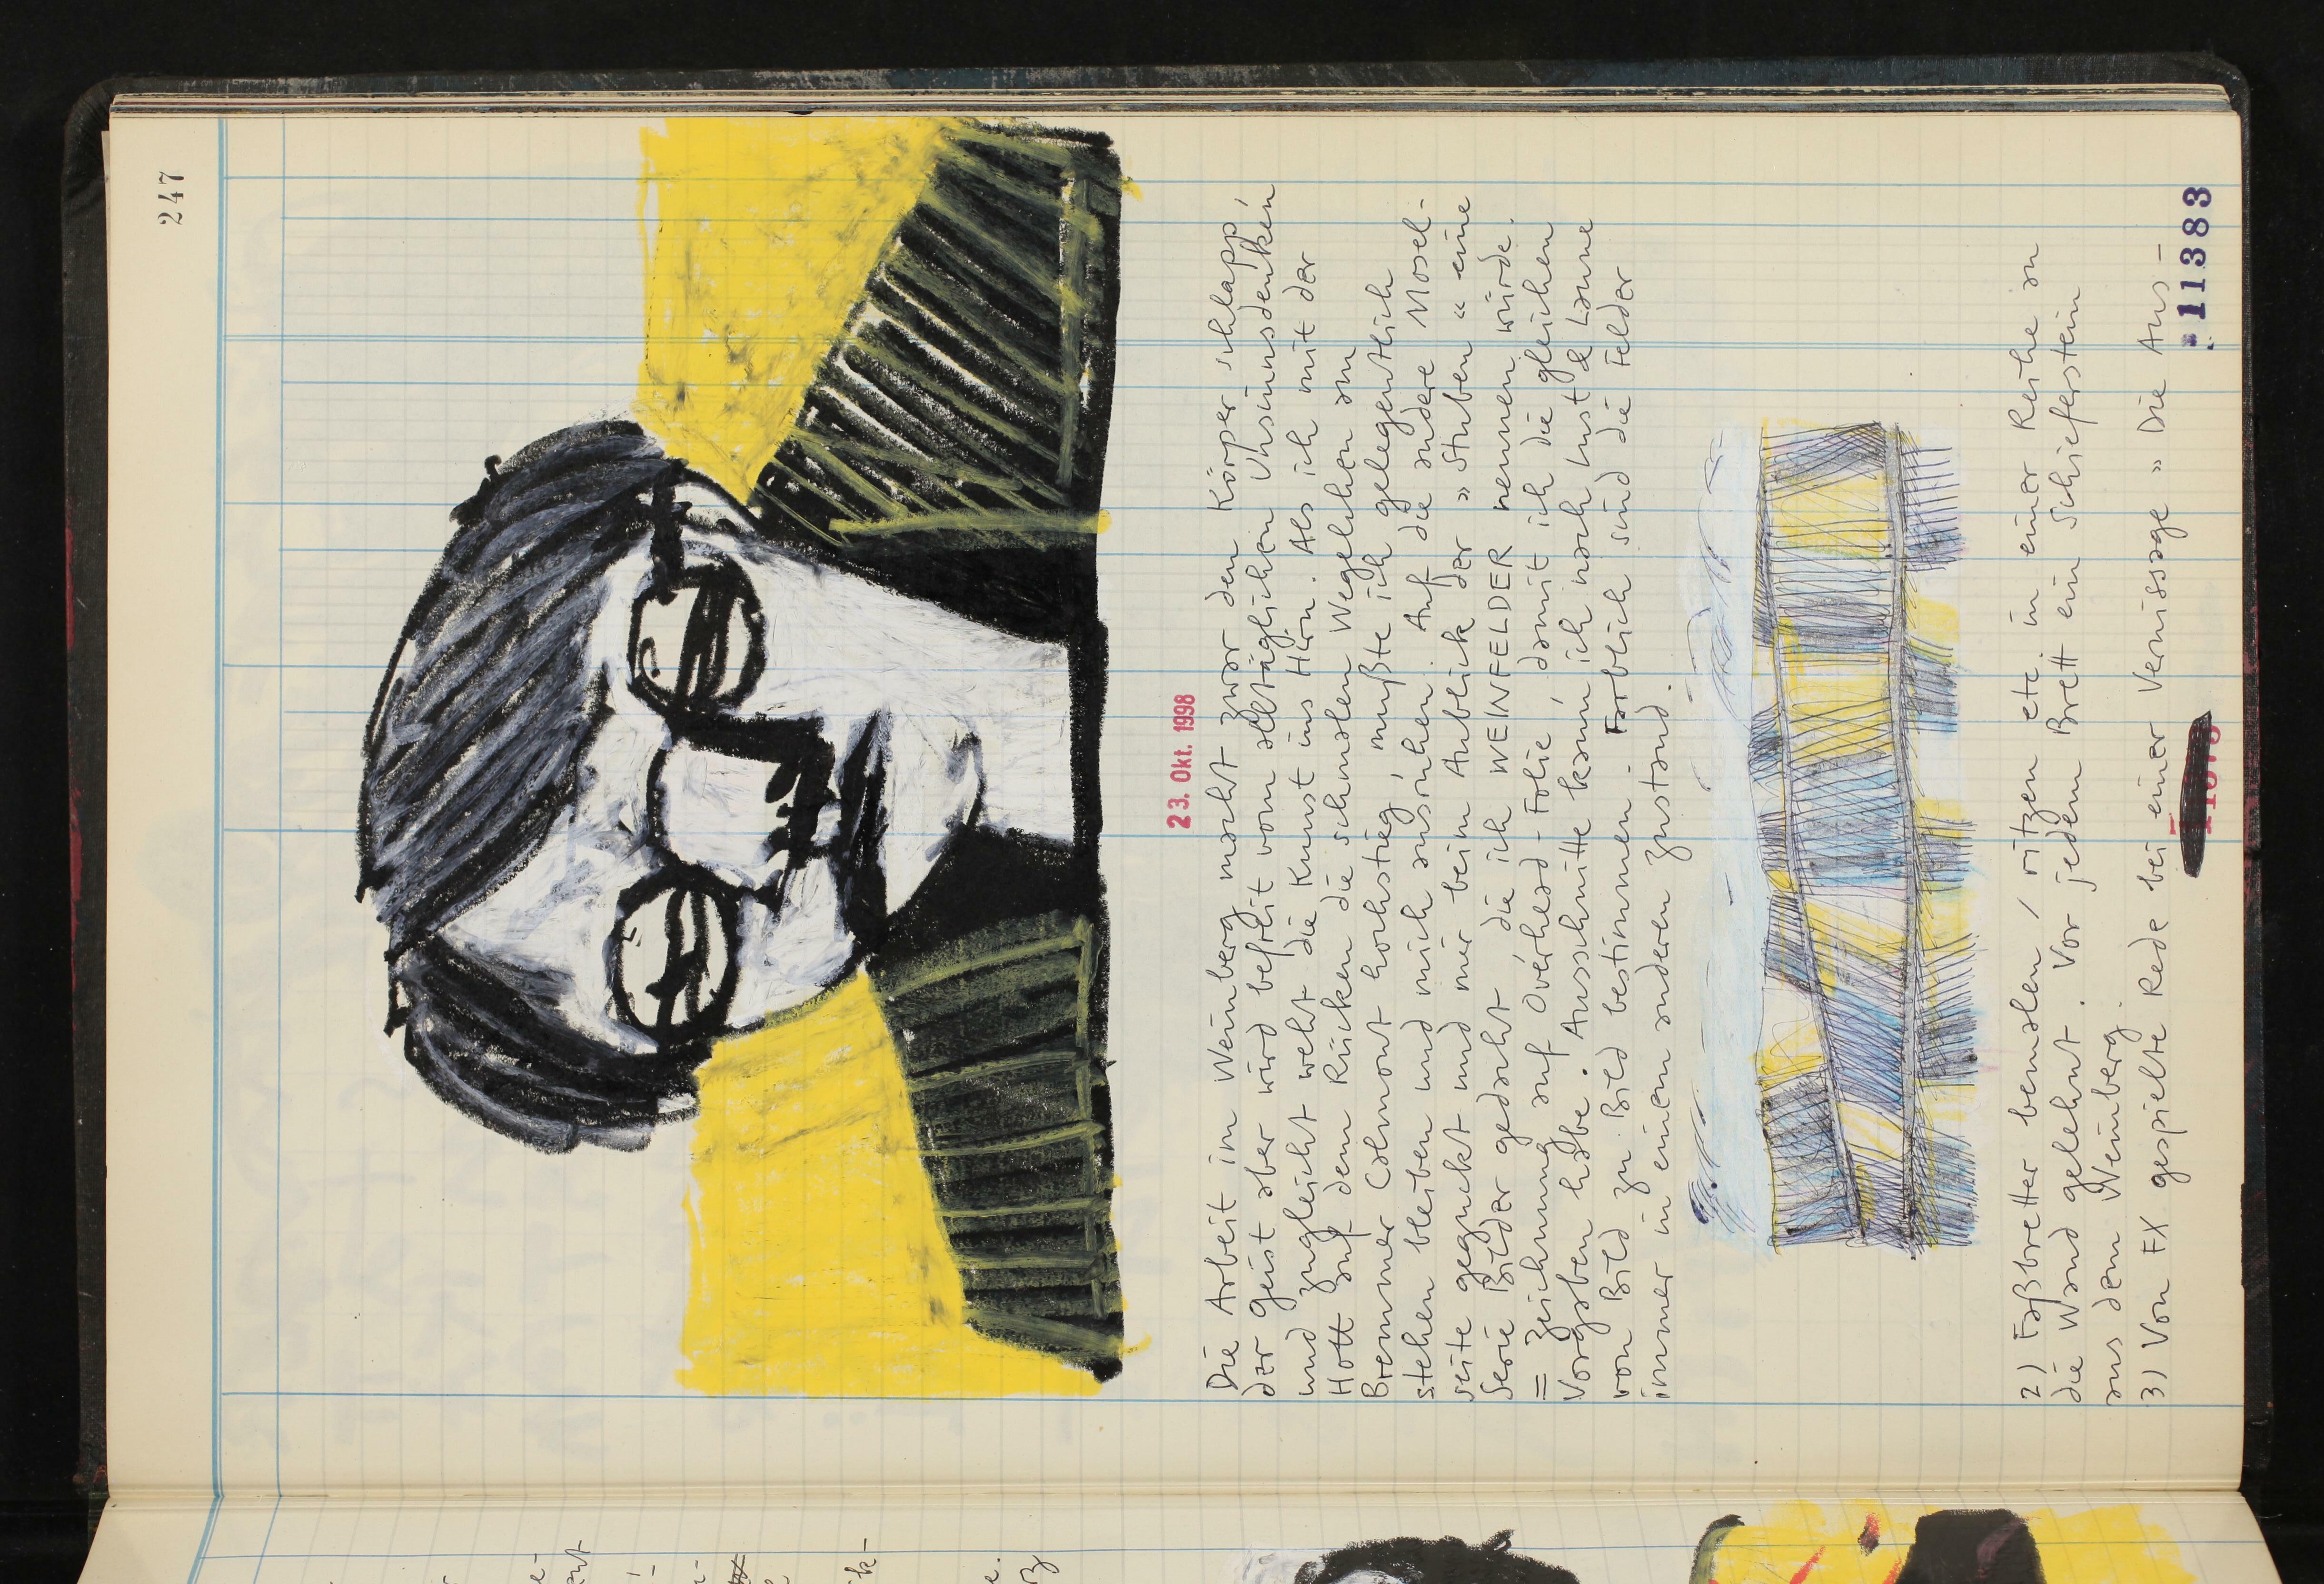 247
23. Okt. 1998
Die Arbeit im Weinberg macht zwar den Körper schlapp,
der Geist aber wird befreit vom alltäglichen Unsinnsdenken
und zugleich weht die Kunst ins Hirn. Als ich mit der
Hott auf dem Rücken die schmalen Wegelchen am
Bremmer Calmont hochstieg, mußte ich gelegentlich
stehen bleiben und mich ausruhen. Auf die andere Mosel-
seite geguckt und mir beim Anblick der "Stuben" eine
Serie Bilder gedacht die ich WEINFELDER nennen würde.
= Zeichnung auf Overhead-Folie, damit ich die gleichen
Vorgaben habe. Ausschnitte kann ich nach Lust & Laune
von Bild zu Bild bestimmen. Farblich sind die Felder
immer in einem anderen Zustand.
2) Faßbretter bemalen / ritzen etc. in einer Reihe an
die Wand gelehnt. Vor jedem Brett ein Schieferstein
aus dem Weinberg.
3) Von FX gespielte Rede bei einer Vernissage "Die Aus-
11383